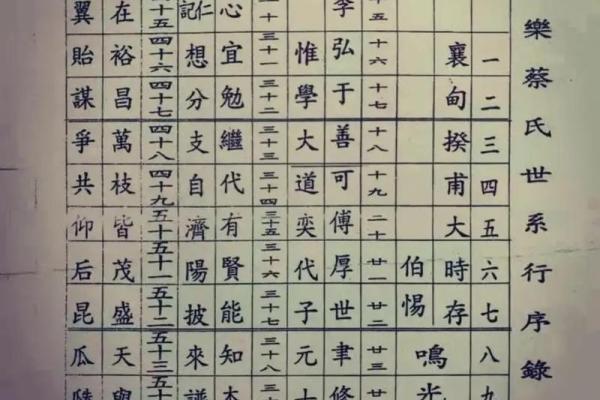 樂蔡氏世系行序錄
一二三四五六七八九
襄甸揆甫大時存
伯惕
鳴光
十五 十六 十七 十八 十九 二十 廿一 廿二 廿三
李弘于善可傅厚世聿修
惟學大道奕代子元
三十一 三十二 三十三 三十四 三十五 三十六 三十七 三十八
心宜勉繼代有賢能知本
仁記
想分支自濟陽披來譜
十五 四十六 四十七 四十八 四十九 五十 五十一 五十二 五十三
在裕昌萬枝皆茂盛天與
翼貽謀爭共仰后昆瓜瓞